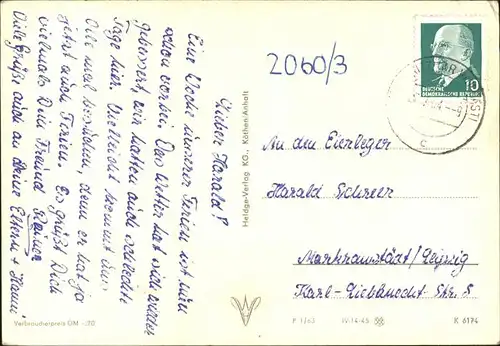 Lieber Harald!
Eine Woche unserer Ferien ist nun
schon vorbei. Das Wetter hat sich wieder
gebessert, wir hatten auch schlechte
Tage hier. Vielleicht kommt
Ulli mal besuchen, denn er hat ja
jetzt auch Ferien. Es grüßt Dich
vielmals Dein Freund Rainer
Viele Grüße auch an deine Eltern +
Verbraucherpreis DM -,20
Heldge-Verlag KG., Köthen-Anhalt
2060/3
DEUTSCHE
DEMOKRATISCHE REPUBLIK
10
An den Eierleger
Harald Schreer
Markranstädt/Leipzig
Karl-Liebknecht Str. 5
P 1/63 IV-14-45 K 6174